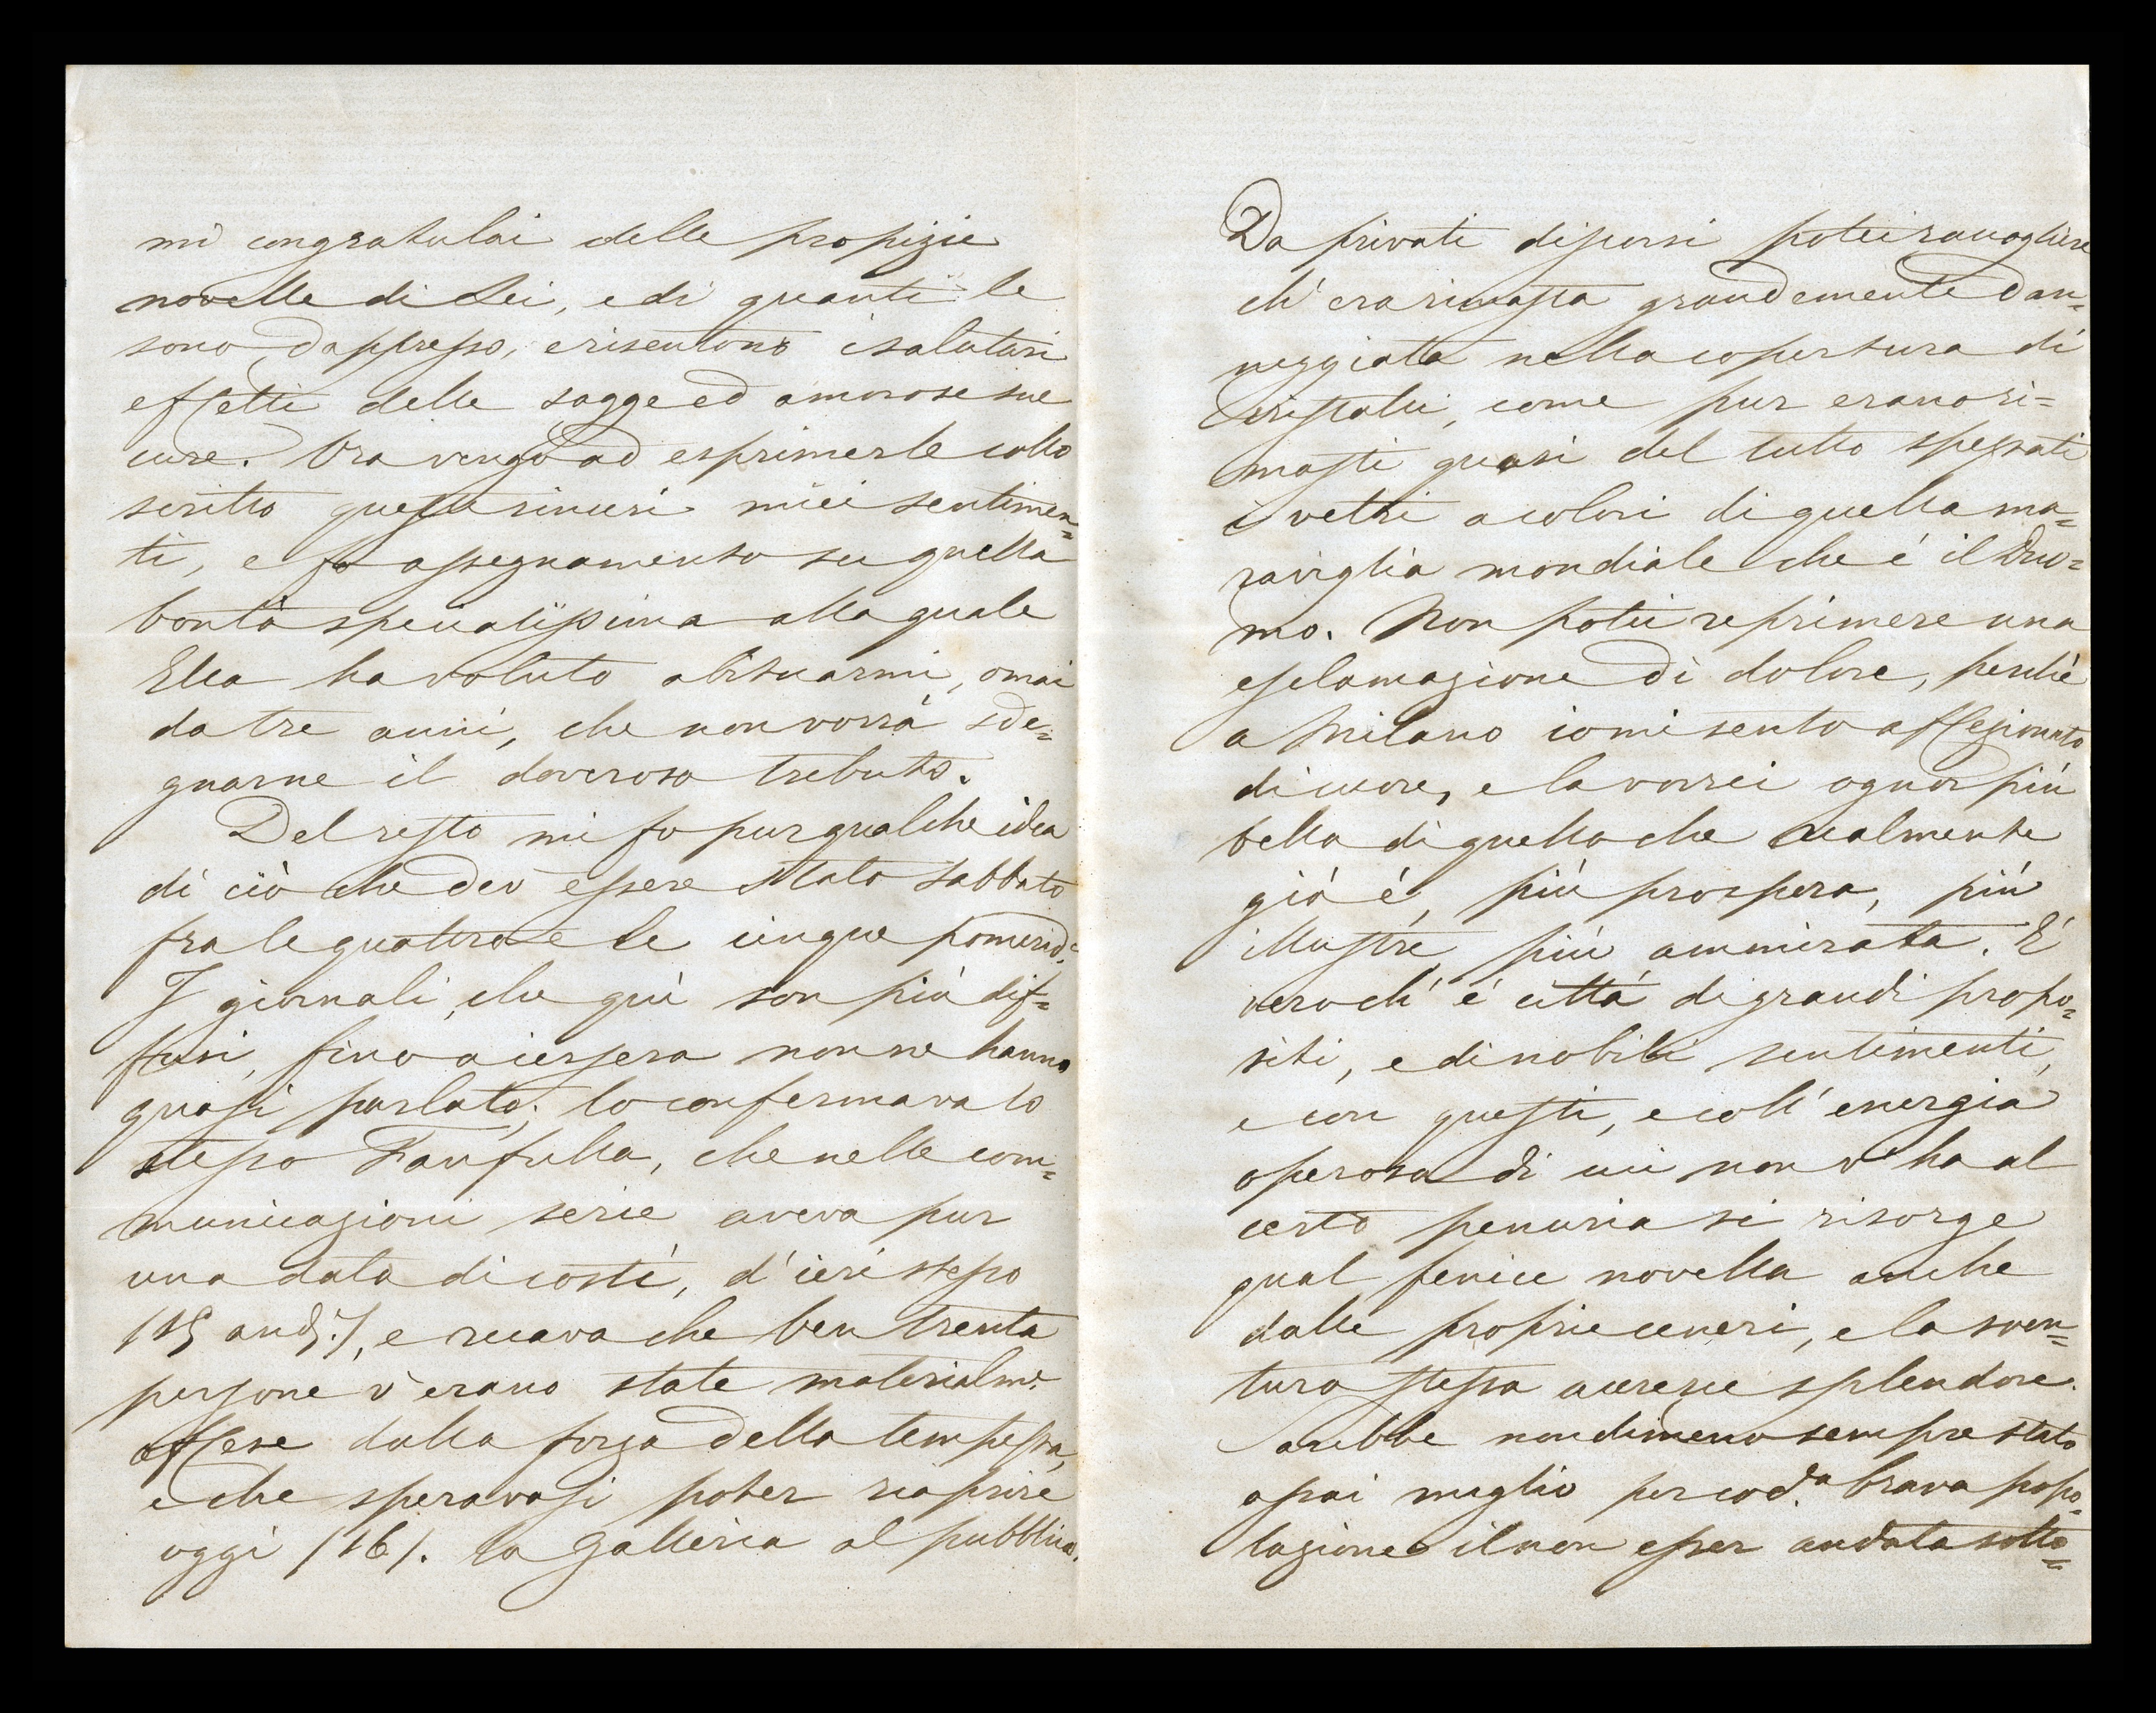 mi congratulai delle propizie
novelle di Lei, e di quanti le
sono dappresso, e risentono i salutari
effetti delle sagge ed amorose sue
cure. Ora vengo ad esprimerle collo
scritto questi sinceri miei sentimen=
ti, e fo assegnamento su quella
bontà specialissima alla quale
Ella ha voluto abituarmi, omai
da tre anni, che non vorrà sde=
gnarne il doveroso tributo.
Del resto mi fo pur qualche idea
di ciò che dev' essere stato Sabbato
fra le quattro e le cinque pomerid.
I giornali, che quì son più dif=
fusi, fino a jersera non ne hanno
quasi parlato; lo confermava lo
stesso Fanfulla, che nelle com=
municazioni serie aveva pur
una data di costì, d' ieri stesso
(15 and.e), e recava che ben trenta
persone v' erano state materialme.
offese dalla forza della tempesta,
e che speravasi poter riaprire
oggi (16). la Galleria al pubblico.
Da privati discorsi potei raccogliere
ch' era rimasta grandemente dan=
neggiata nella copertura di
cristalli, come pur erano ri=
masti quasi del tutto spezzati
i vetri a colori di quella ma=
raviglia mondiale che é il Duo=
mo. Non potei reprimere una
esclamazione di dolore, perchè
a Milano io mi sento affezionato
di cuore, e la vorrei ognor più
bella di quello che realmente
già é, più prospera, più
illustre, più ammirata. E'
vero ch' é città di grandi propo=
siti, e di nobili sentimenti,
e con questi, e coll' energia
operosa di cui non v' ha al
certo penuria si risorge
qual fenice novella anche
dalle proprie ceneri, e la sven=
tura stessa accresce splendore.
Sarebbe nondimeno sempre stato
assai meglio per cod.a brava popo=
lazione il non esser andata sotto=